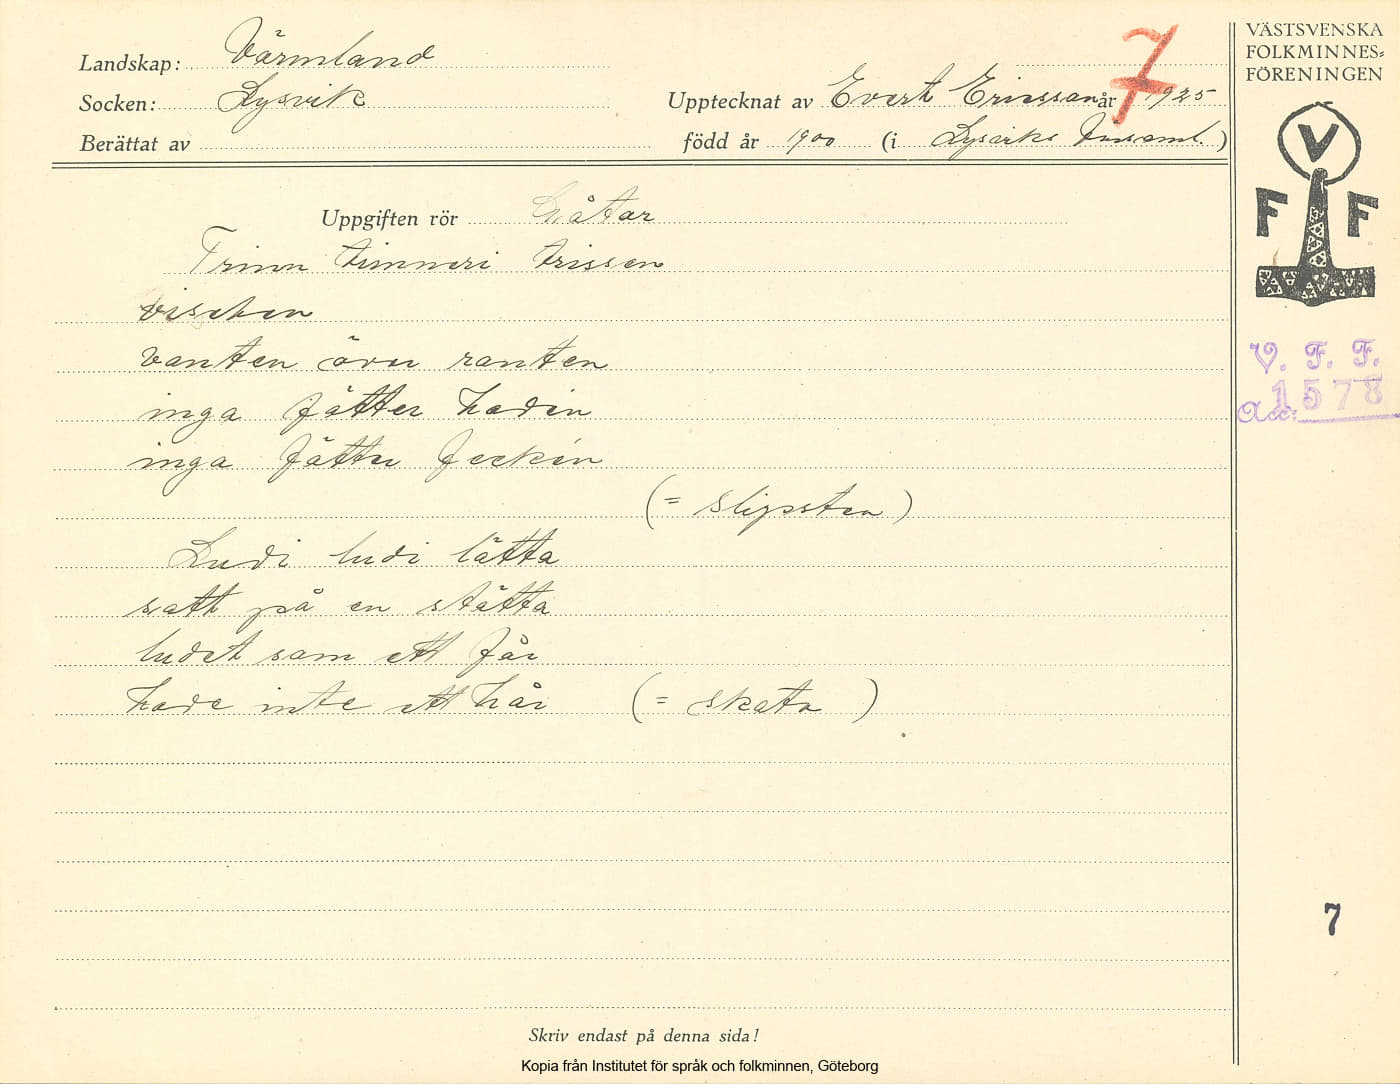 Landskap: Värmland
Socken: Lysvik
Berättat av
Upptecknat av Evert Ericsson år 1925
född år 1900 (i Lysviks )
7
VÄSTSVENSKA
FOLKMINNES-
FÖRENINGEN
V
F F
V. F. F.
Acc: 1578
Uppgiften rör Gåtar
Trinn timmeri trissen
vischen
vanten över ranten
inga fätter hadin
inga fätter feckin
(= slipsten)
Ludi ludi lätta
satt på en stätta
ludet som ett får
hade inte ett hår (= skata )
7
Skriv endast på denna sida!
Kopia från Institutet för språk och folkminnen, Göteborg